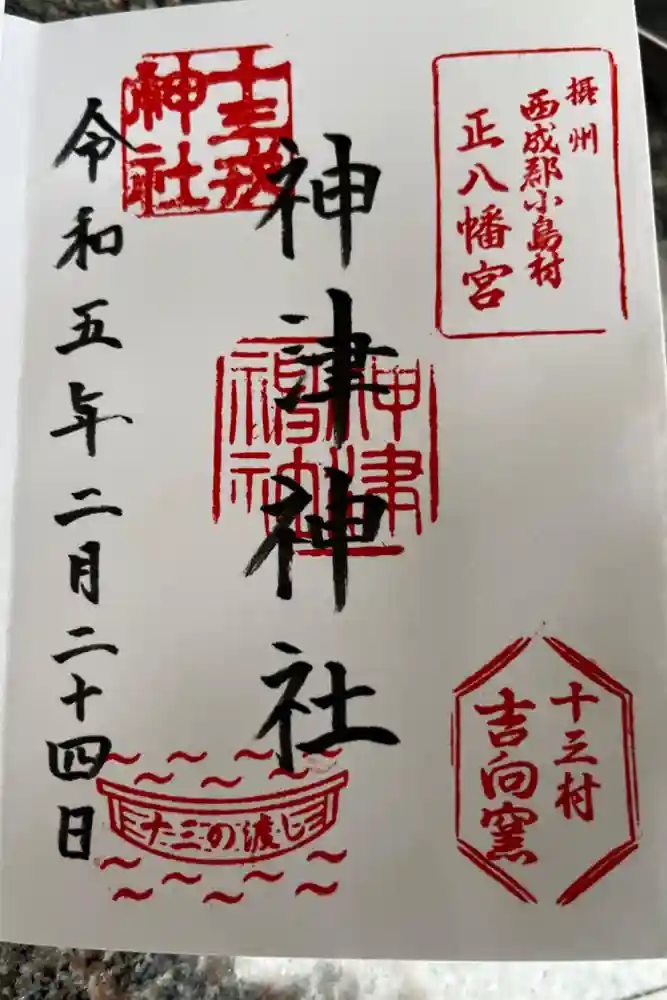 摂州
西成郡小島村
正八幡宮
十三村
吉向窯
神津神社
十三戎
神社
十三の渡し
令和五年二月二十四日